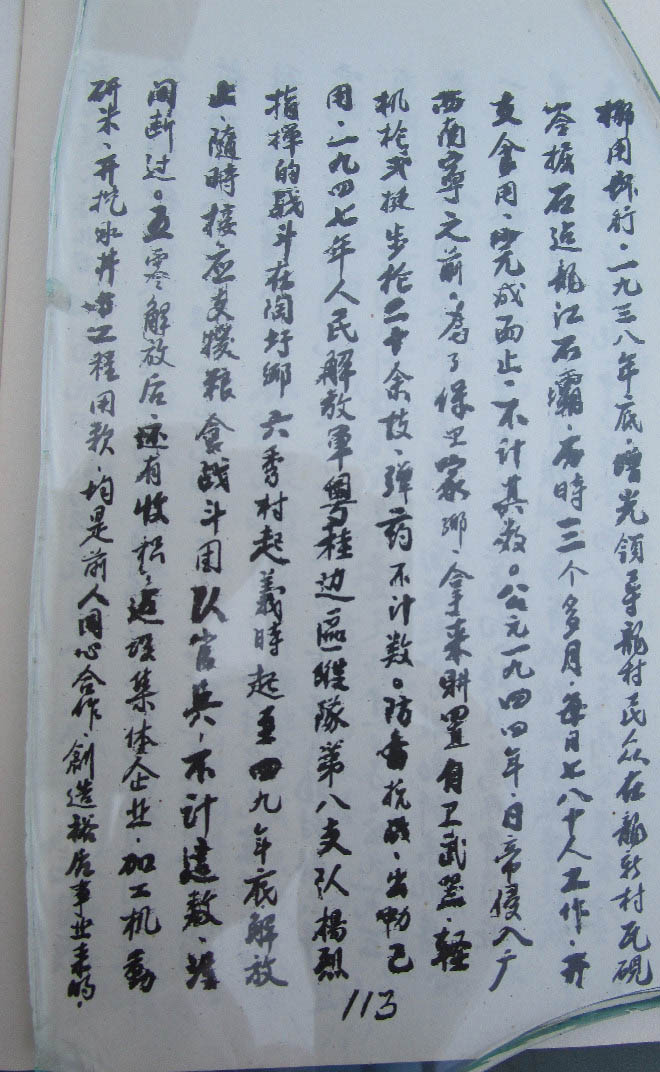 挪用歩行·一九三八年底·增光領导龍村民众在龍新村瓦硯
岺楃石造龍江石壩·历時三个多月·每日七八十人工作·开
支伙用·完成而止·不计其数。公元一九四四年·日帝侵入广
西南寧之前·為了保卫家鄉·拿来購置自卫武器·軽
机枪弍挺步枪二十余枝·弹药不计数。防奋抗战·出勤已
用·一九四七年人民解放军粤桂边區縱隊第八支队楊烈
指揮的戰斗在闾圩鄉六秀村起義時起至四九年底解放
止·隨時接应支援粮食战斗用队官兵·不计这数·没
间断过。五零解放后·还有收积·造成集体企业·加工机動
研米·开挖水井等工程用款·均是前人同心合作·創造裕后事业来的·
113